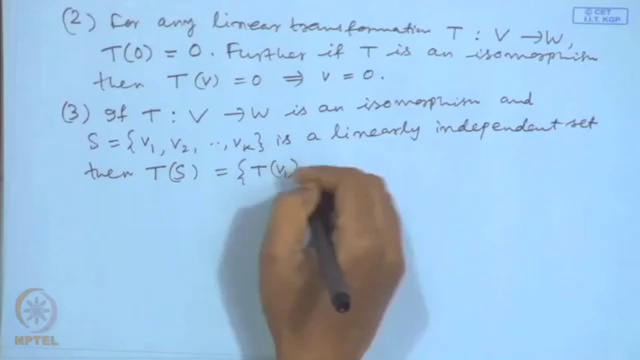 © CET
I.I.T. KGP
(2) For any linear transformation T : V → W,
T(0) = 0. Further if T is an isomorphism
then T(v) = 0 ⇒ v = 0.
(3) If T : V → W is an isomorphism and
S = {v₁, v₂, .., vₖ} is a linearly independent set
then T(S) = {T(v₁)
NPTEL